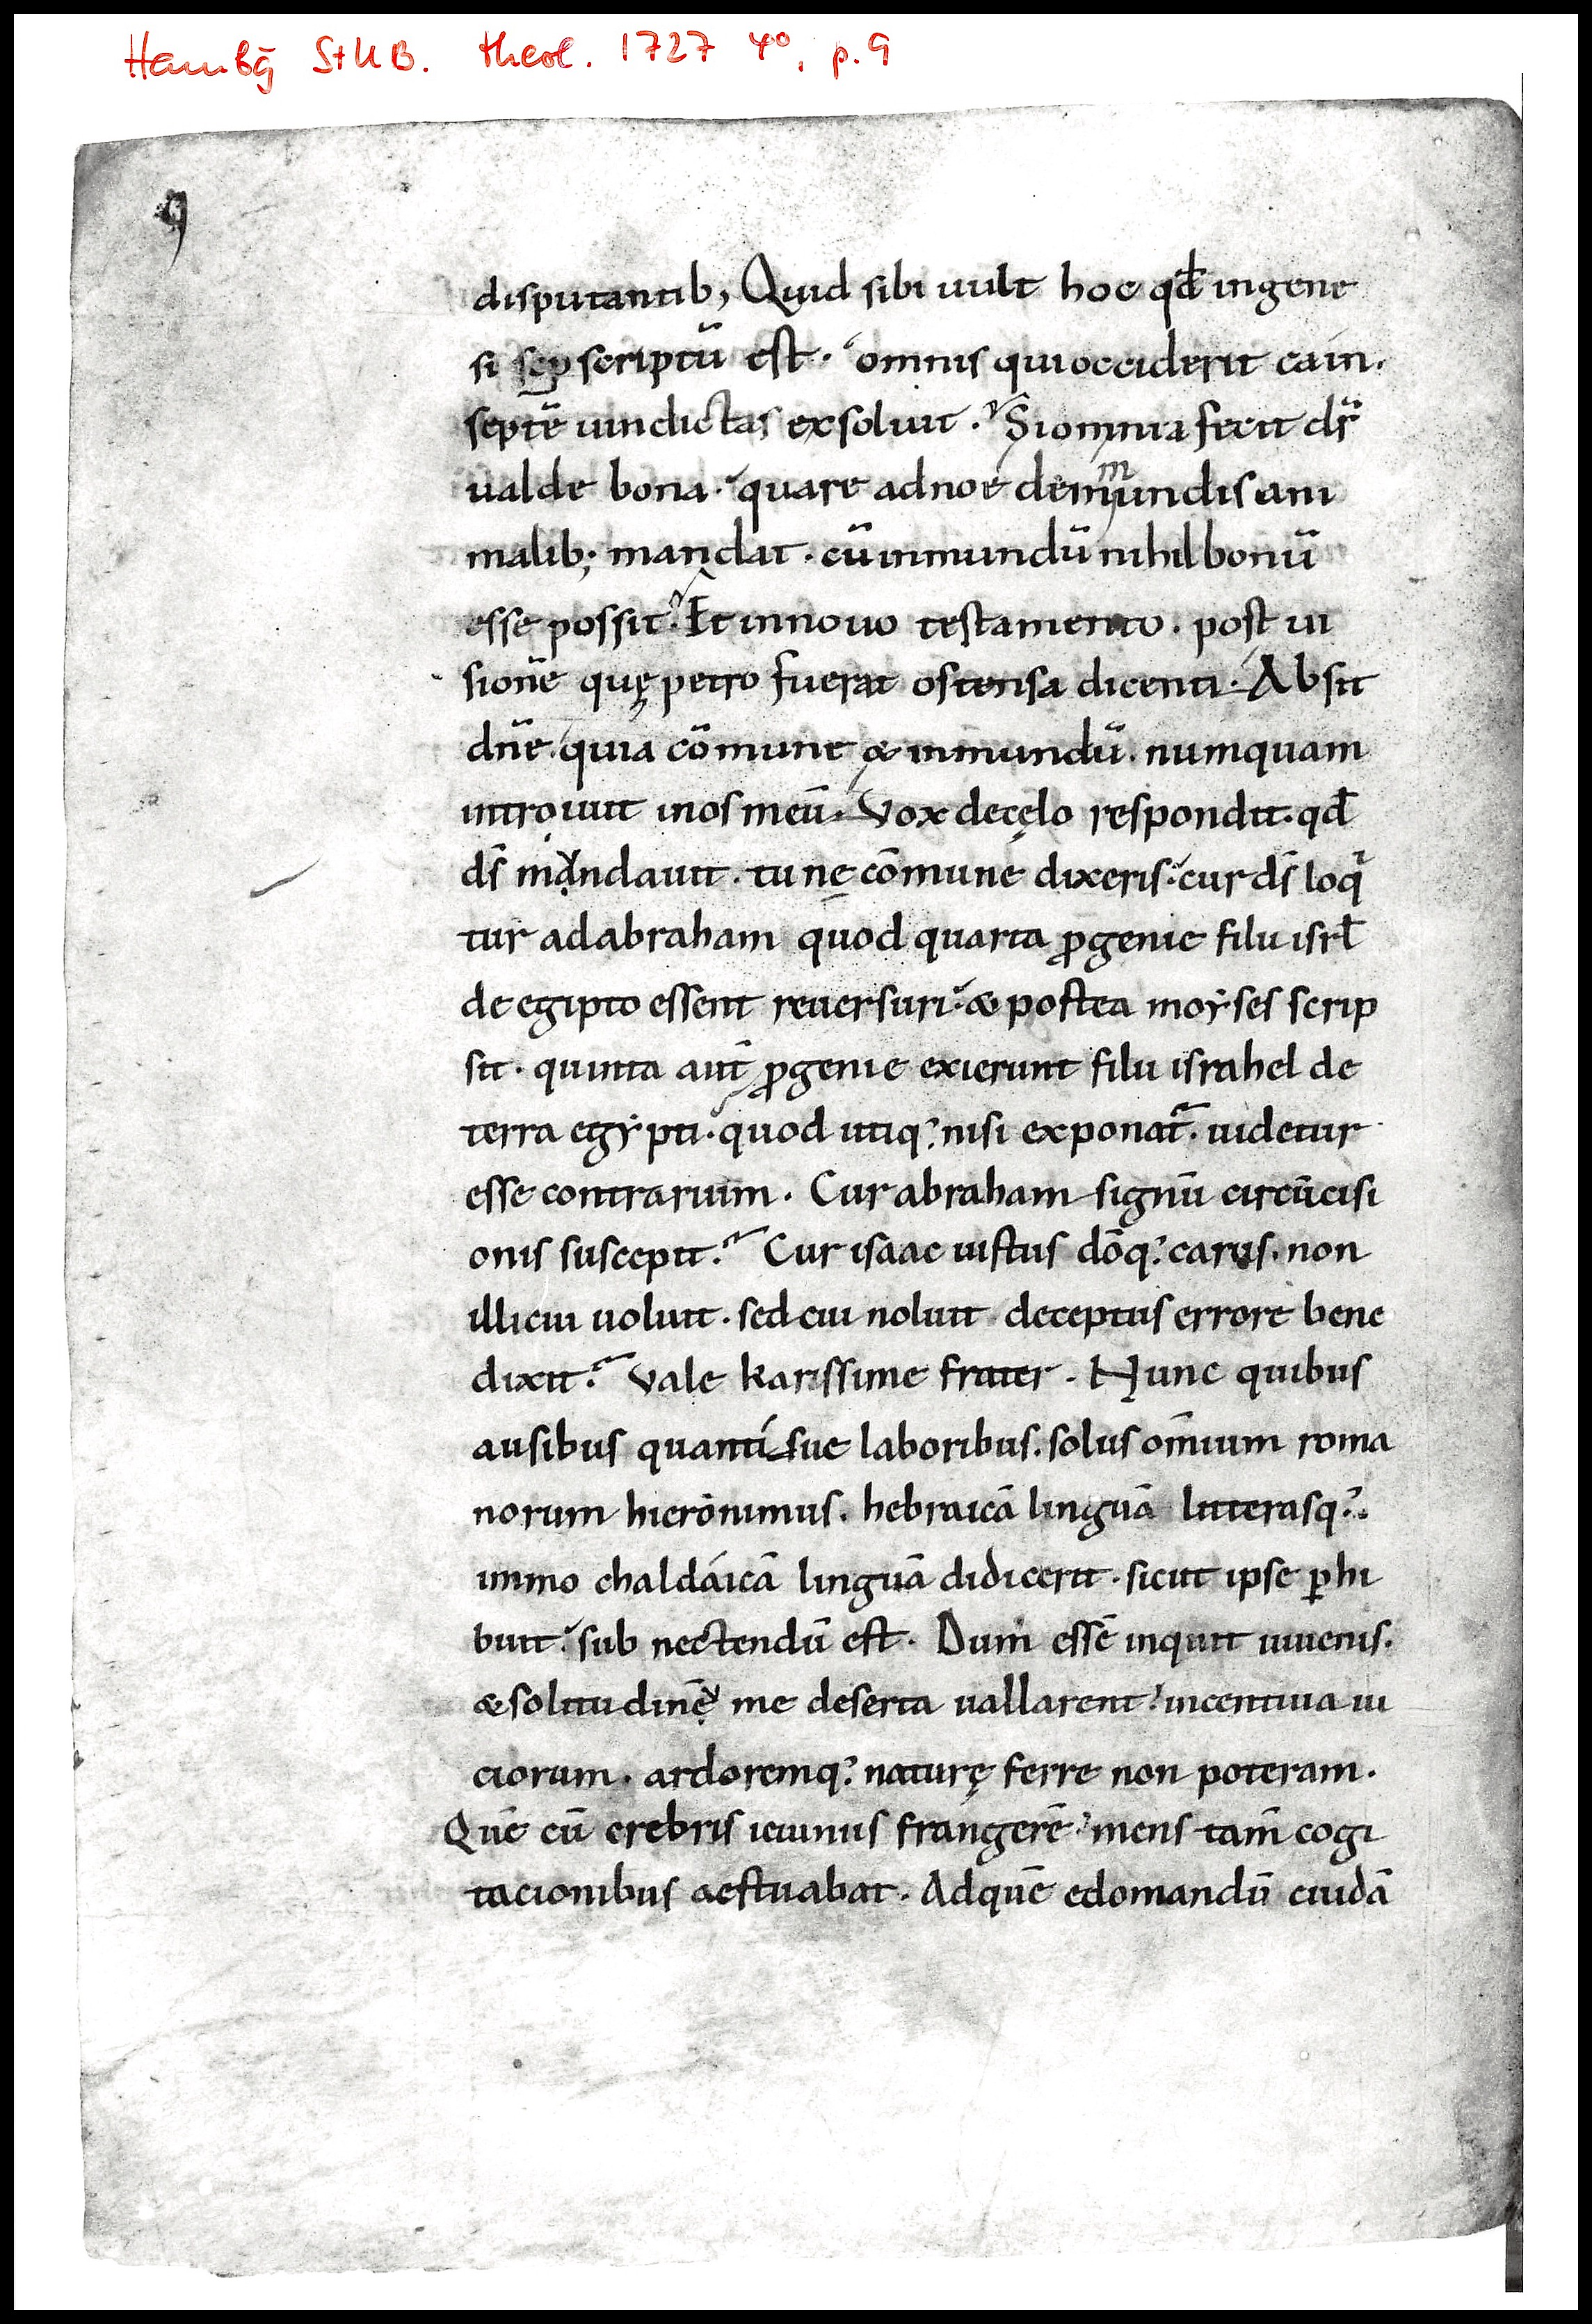 Hambg̃ StUB. theol. 1727 4°, p. 9
9
disputantib; Quid sibi uult hoc qđ ingene
si sep scriptū est. omnis qui occiderit cain.
septē uindictas exsoluit. Si omnia fecit ds̄
ualde bona. quare ad noe de inmundis ani
malib; mandat. cū inmundū nihil bonū
esse possit? Et in nouo testamento. post ui
sionē quę petro fuerat ostensa dicenti. Absit
dn̄e. quia cōmune & inmundū. numquam
introiuit in os meū. Vox de cęlo respondit. qđ
ds̄ mandauit. tu ne cōmune dixeris. cur ds̄ loqͥ
tur ad abraham quod quarta ꝓgenie filii isrl̄
de egipto essent reuersuri. & postea moẏses scrip
sit. quinta aut̄ ꝓgenie exierunt filii israhel de
terra egẏpti. quod utiq; nisi exponat̄. uidetur
esse contrarium. Cur abraham signū circūcisi
onis suscepit? Cur isaac iustus dōq; carus. non
illi cui uoluit. sed cui noluit deceptus errore bene
dixit? Vale karissime frater. Nunc quibus
ausibus quanti sue laboribus. solus om̄ium roma
norum hieronimus. hebraicā linguā litterasq;.
immo chaldaicā linguā didicerit. sicut ipse ꝑhi
buit. sub nectendū est. Dum essē inquit iuuenis.
& solitudinę me deserta uallarent. incentiua ui
ciorum. ardoremq; naturę ferre non poteram.
Quē cū crebris ieiuniis frangerē. mens tam̄ cogi
tacionibus aestuabat. Ad quē edomandū cuidā